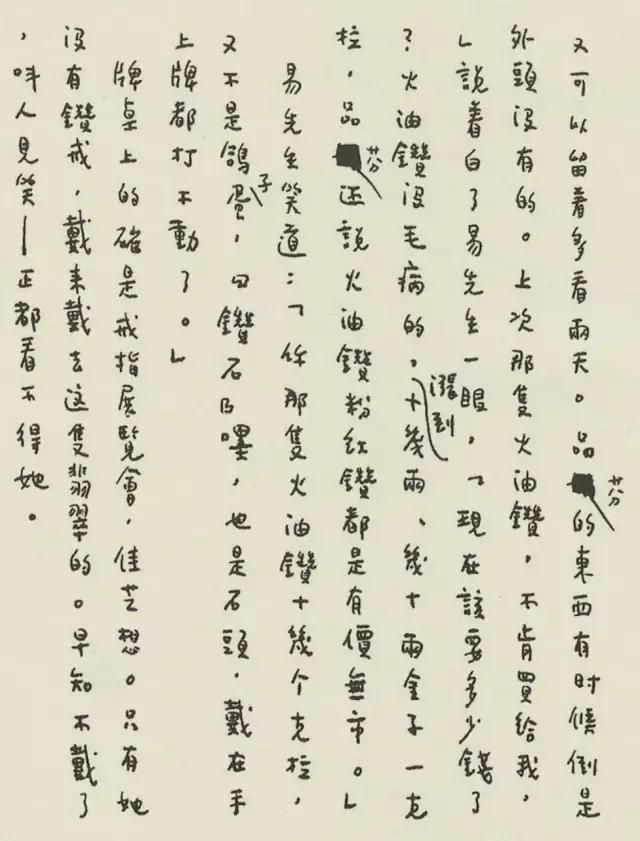 又可以留着多看兩天。品芬的東西有时候倒是
外頭没有的。上次那隻火油鑽，不肯買給我，
」說着白了易先生一眼，「現在該要多少錢了
？火油鑽没毛病的，漲到十幾兩、幾十兩金子一克
拉，品芬还說火油鑽粉红鑽都是有價無市。」
易先生笑道：「你那隻火油鑽十幾个克拉，
又不是鴿子蛋，『鑽石』嚜，也是石頭，戴在手
上牌都打不動了。」
牌桌上的確是戒指展覽會，佳芝想。只有她
没有鑽戒，戴来戴去这隻翡翠的。早知不戴了
，叫人見笑—正都看不得她。